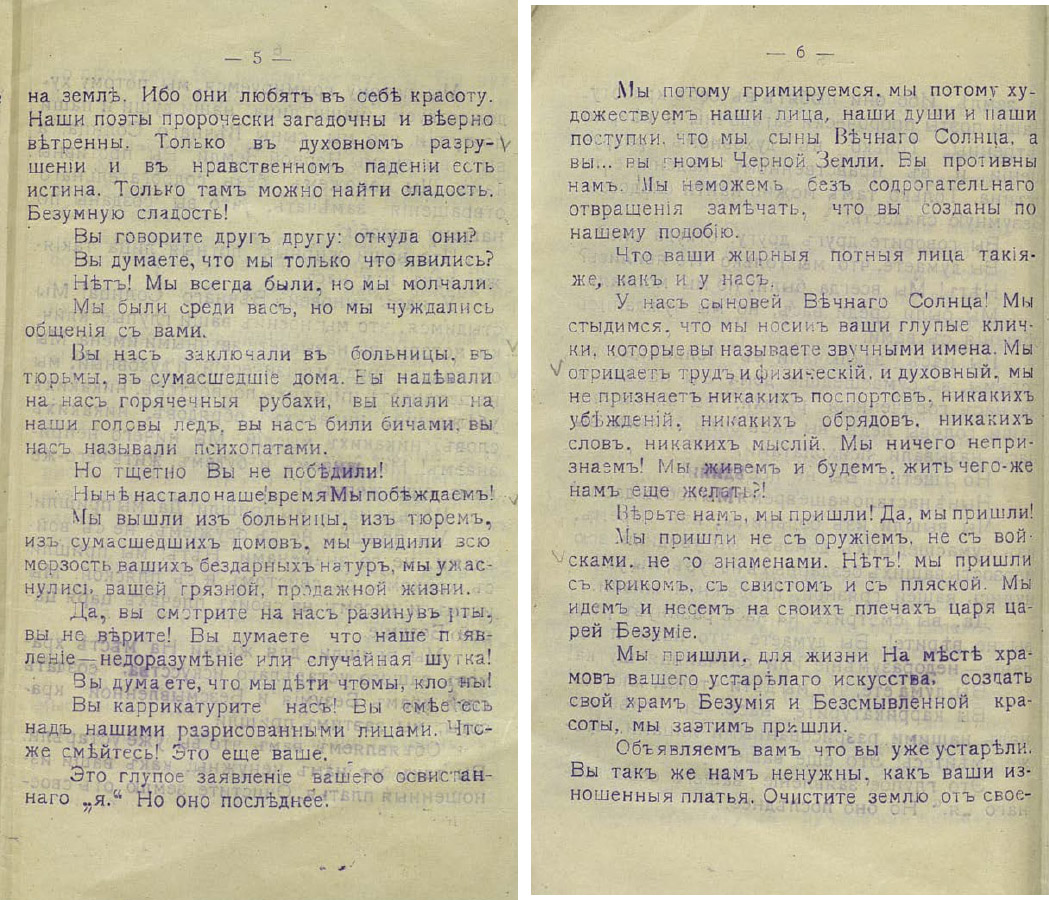 — 5 —
на землѣ. Ибо они любятъ въ себѣ красоту.
Наши поэты пророчески загадочны и вѣерно
вѣтренны. Только въ духовномъ разру-
шеніи и въ нравственномъ паденіи есть
истина. Только тамъ можно найти сладость.
Безумную сладость!
Вы говорите другъ другу: откуда они?
Вы думаете, что мы только что явились?
Нѣтъ! Мы всегда были, но мы молчали.
Мы были среди васъ, но мы чуждались
общенія съ вами.
Вы насъ заключали въ больницы, въ
тюрьмы, въ сумасшедшіе дома. Вы надѣвали
на насъ горячечныя рубахи, вы клали на
наши головы ледъ, вы насъ били бичами, вы
насъ называли психопатами.
Но тщетно Вы не побѣдили!
Нынѣ настало наше время Мы побѣждаемъ!
Мы вышли изъ больницы, изъ тюремъ,
изъ сумасшедшихъ домовъ, мы увидили всю
мерзость вашихъ бездарныхъ натуръ, мы ужас-
нулись вашей грязной, продажной жизни.
Да, вы смотрите на насъ разинувъ рты,
вы не вѣрите! Вы думаете что наше появ-
леніе—недоразумѣніе или случайная шутка!
Вы думаете, что мы дѣти чтомы, клоуны!
Вы каррикатурите насъ! Вы смѣетесь
надъ нашими разрисованными лицами. Что-
же смѣйтесь! Это еще ваше.
Это глупое заявленіе вашего освистан-
наго „я.“ Но оно послѣднее.
— 6 —
Мы потому гримируемся, мы потому ху-
дожествуемъ наши лица, наши души и наши
поступки, что мы сыны Вѣчнаго Солнца, а
вы... вы гномы Черной Земли. Вы противны
намъ. Мы неможемъ безъ содрогательнаго
отвращенія замѣчать, что вы созданы по
нашему подобію.
Что ваши жирныя потныя лица такія-
же, какъ и у насъ.
У насъ сыновей Вѣчнаго Солнца! Мы
стыдимся, что мы носимъ ваши глупые клич-
ки, которые вы называете звучными имена. Мы
отрицаетъ трудъ и физическій, и духовный, мы
не признаетъ никакихъ поспортовъ, никакихъ
убѣжденій, никакихъ обрядовъ, никакихъ
словъ, никакихъ мыслій. Мы ничего непри-
знаемъ! Мы живемъ и будемъ, жить чего-же
намъ еще желать?!
Вѣрьте намъ, мы пришли! Да, мы пришли!
Мы пришли не съ оружіемъ, не съ вой-
сками, не со знаменами. Нѣтъ! мы пришли
съ крикомъ, съ свистомъ и съ пляской. Мы
идемъ и несемъ на своихъ плечахъ царя ца-
рей Безуміе.
Мы пришли, для жизни На мѣстѣ хра-
мовъ вашего устарѣлаго искусства, создать
свой храмъ Безумія и Безсмывленной кра-
соты, мы заэтим пришли.
Объявляемъ вамъ что вы уже устарѣли.
Вы такъ же намъ ненужны, какъ ваши из-
ношенныя платья. Очистите землю отъ свое-